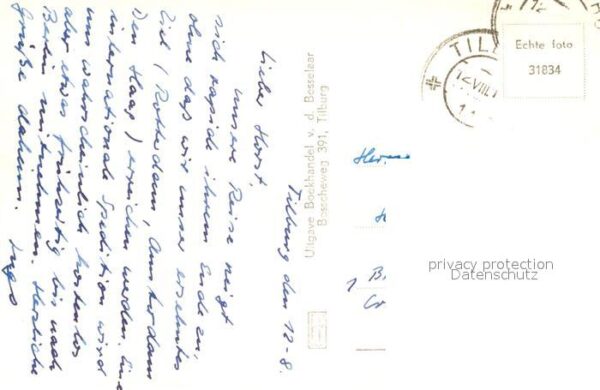 Tilburg den 12-8.
Lieber Horst,
unsere Reise neigt
sich rapide ihrem Ende zu,
ohne daß wir unser ersehntes
Ziel (Rotterdam, Amsterdam
Den Haag) erreichen werden. Eine
internationale Spedition wird
uns wahrscheinlich kostenlos
aber etwas frühzeitig bis nach
Berlin mitnehmen. Herzliche
Grüße daheim. Ingo
Uitgave Boekhandel v. d. Besselaar
Bosscheweg 391, Tilburg
TIL
12.VIII.
Echte foto
31834
privacy protection
Datenschutz